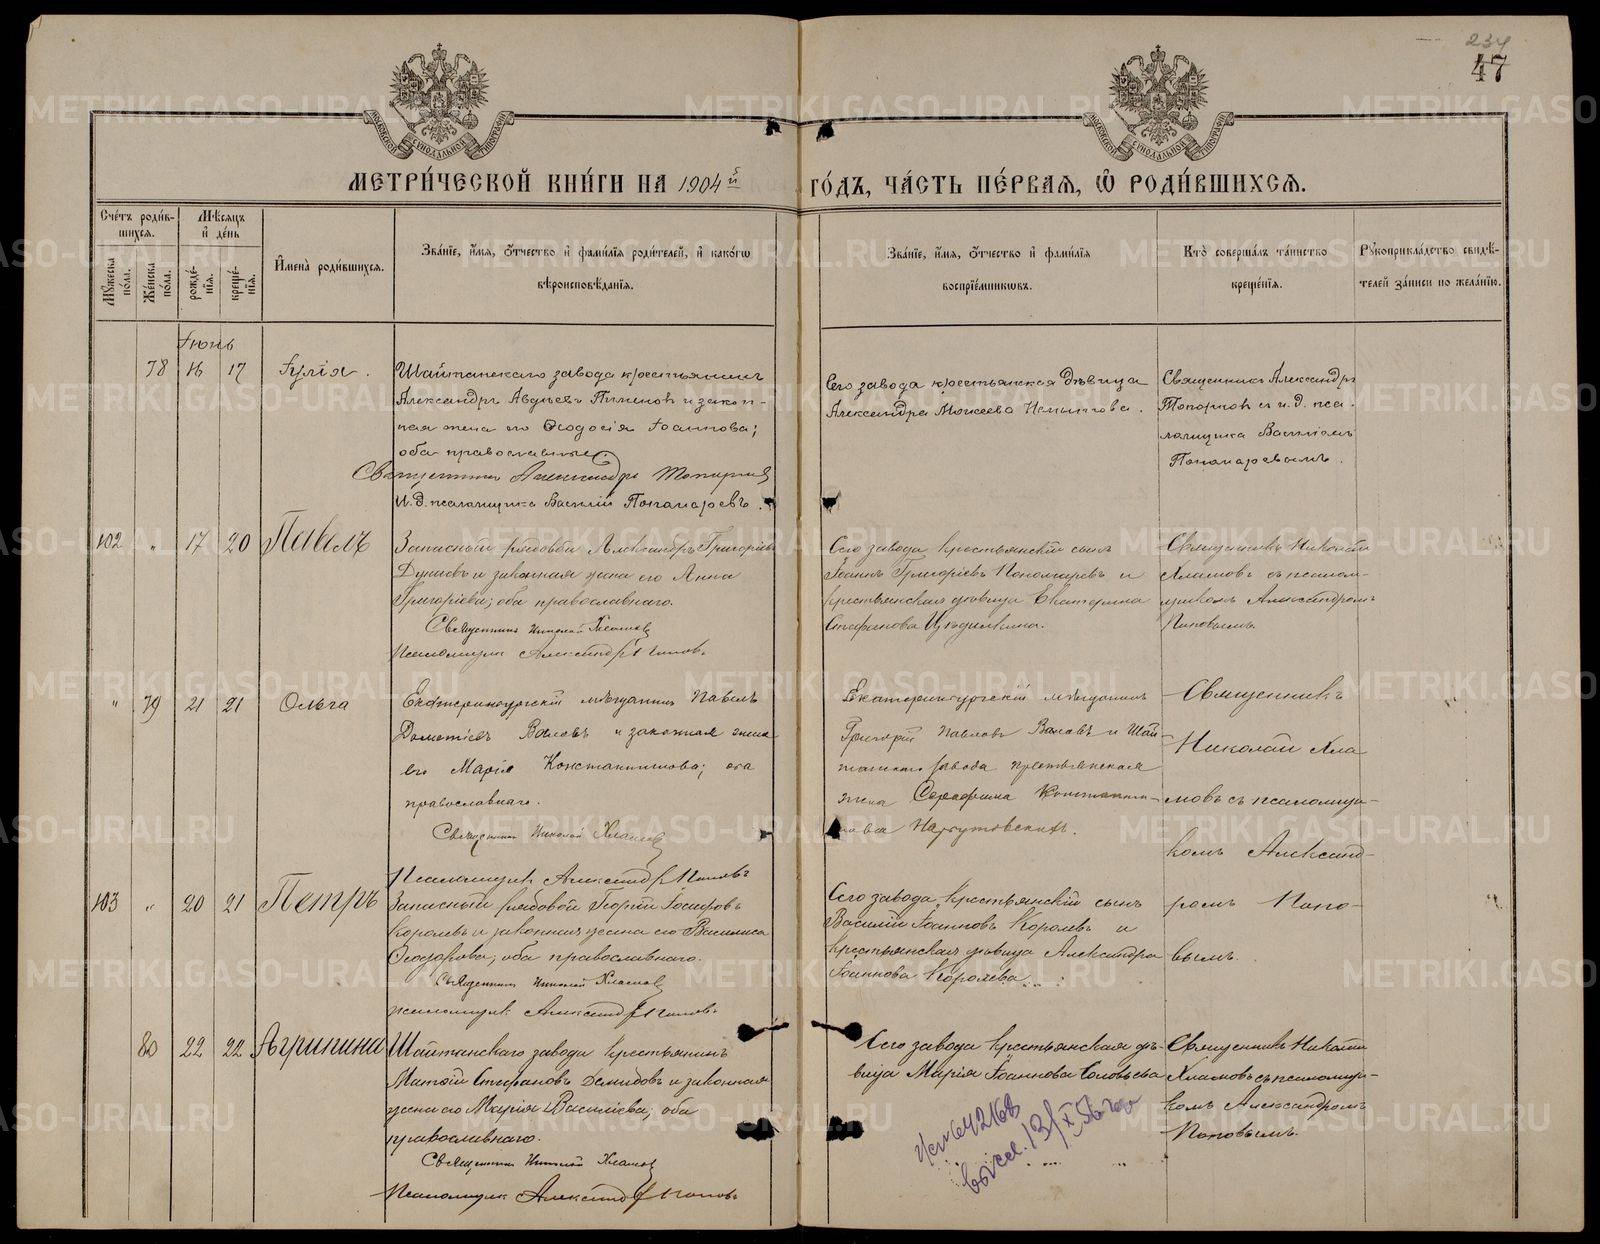 234
47
МЕТРИ́ЧЕСКОЙ КНИ́ГИ НА 1904й ГО́ДЪ, ЧА́СТЬ ПЕ́РВАЯ, Ѡ҆ РОДИ́ВШИХСѦ.
Сче́тъ роди́в-
шихсѧ.
Мꙋ́жеска по́ла.
Же́нска по́ла.
Мѣ́сѧцъ
и҆ де́нь
рожде́-
нїѧ.
креще́-
нїѧ.
И҆мена̀ роди́вшихсѧ.
Зва́нїе, и҆́мѧ, ѻ҆́тчество и҆ фами́лїѧ роди́телей, и҆ како́гѡ
вѣроисповѣ́данїѧ.
Зва́нїе, и҆́мѧ, ѻ҆́тчество и҆ фами́лїѧ
воспрїе́мникѡвъ.
Кто̀ соверша́лъ та́инство
креще́нїѧ.
Рꙋкоприкла́дство свидѣ́-
телей за́писи по жела́нїю.
Іюнь
78 16 17 Іулія.
Шайтанскаго завода крестьянинъ
Александръ Авдіевъ Пименовъ и закон-
ная жена его Ѳеодосія Іоаннова;
оба православные.
Священникъ Александръ Топорковъ
И. Д. псаломщика Василій Пономаревъ.
Сего завода крестьянская дѣвица
Александра Моисеева
Священникъ Александръ
Топорковъ съ и. д. пса-
ломщика Василіемъ
Пономаревымъ.
102 " 17 20 Павелъ
Запасный рядовой Александръ Григоріевъ
Дунаевъ и законная жена его Анна
Григоріева; оба православнаго.
Священникъ Николай Хламовъ
Псаломщикъ Александръ Поповъ.
Сего завода крестьянскій сынъ
Іоаннъ Григоріевъ Пономаревъ и
крестьянская дѣвица Екатерина
Стефанова
Священникъ Николай
Хламовъ съ псалом-
щикомъ Александромъ
Поповымъ.
" 79 21 21 Ольга
Екатеринбургскій мѣщанинъ Павелъ
Дометіевъ Валовъ и законная жена
его Марія Константинова; оба
православнаго.
Священникъ Николай Хламовъ
Псаломщикъ Александръ Поповъ
Екатеринбургскій мѣщанинъ
Григорій Павловъ Валовъ и Шай-
танскаго завода крестьянская
жена Серафима Константи-
нова
Священникъ
Николай Хла
мовъ съ псаломщи-
комъ Александ-
ромъ Попо-
вымъ.
103 " 20 21 Петръ
Запасный рядовой Георгій Іосифовъ
Королевъ и законная жена его Василиса
Ѳеодорова; оба православнаго.
Священникъ Николай Хламовъ
Псаломщикъ Александръ Поповъ.
Сего завода крестьянскій сынъ
Василій Іоанновъ Королевъ и
крестьянская дѣвица Александра
Іоаннова Королева.
80 22 22 Агрипина
Шайтанскаго завода крестьянинъ
Матѳій Стефановъ Демидовъ и законная
жена его Марія Василіева; оба
православнаго.
Священникъ Николай Хламовъ
Псаломщикъ Александръ Поповъ
Сего завода крестьянская дѣ-
вица Марія Іоаннова Соловьева
Священникъ Николай
Хламовъ съ псаломщи-
комъ Александромъ
Поповымъ.
METRIKI.GASO-URAL.RU